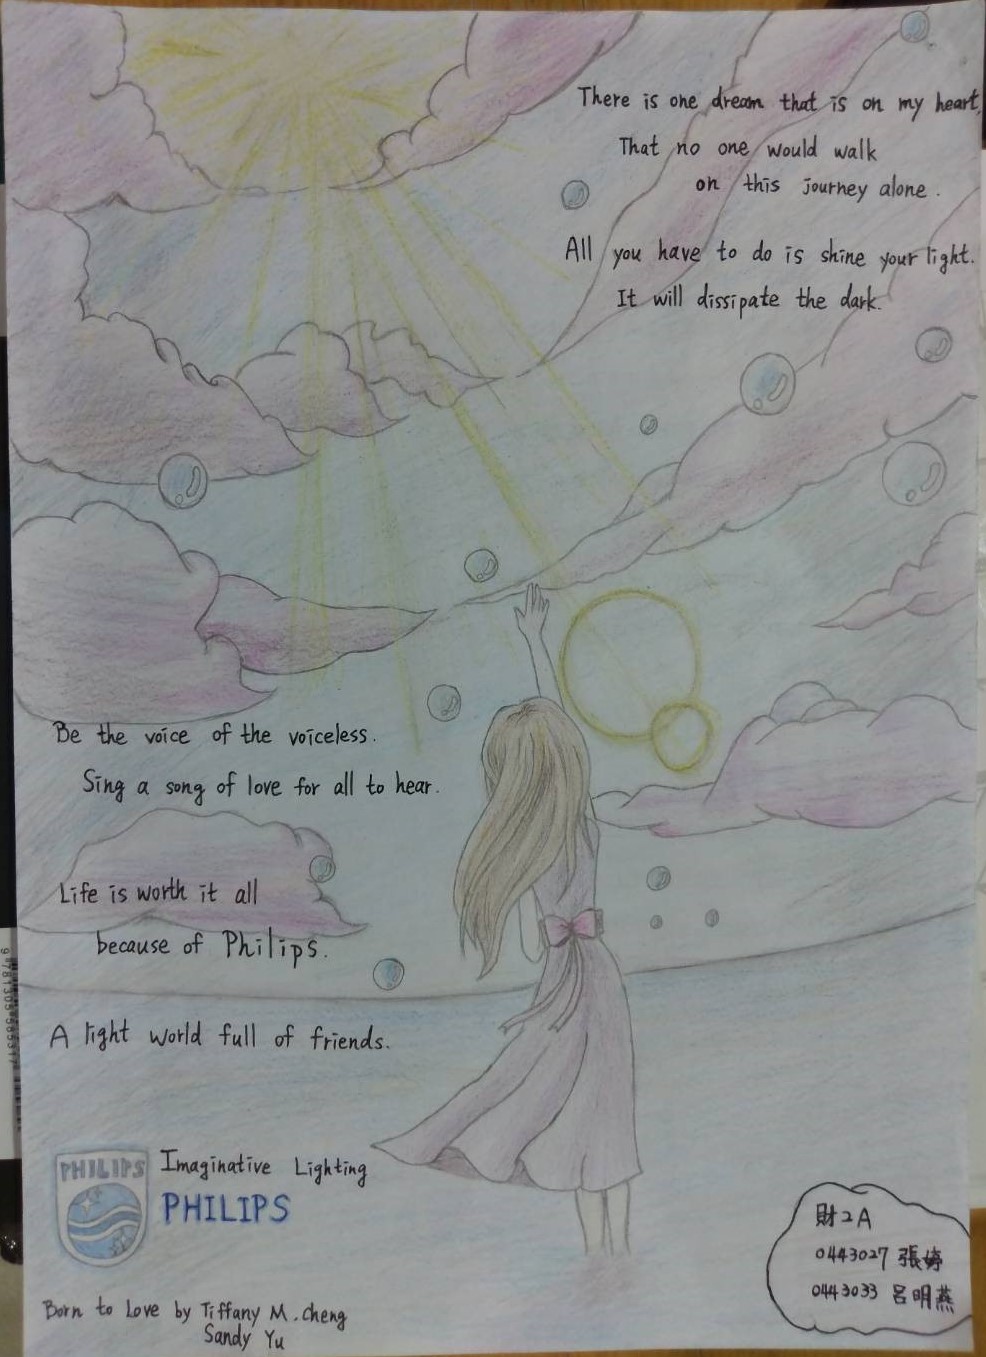 There is one dream that is on my heart,
That no one would walk
on this journey alone.
All you have to do is shine your light.
It will dissipate the dark.
Be the voice of the voiceless.
Sing a song of love for all to hear.
Life is worth it all
because of Philips.
A light world full of friends.
PHILIPS
Imaginative Lighting
PHILIPS
Born to Love by Tiffany M. Cheng
Sandy Yu
財2A
0443027 張婷
0443033 呂明燕